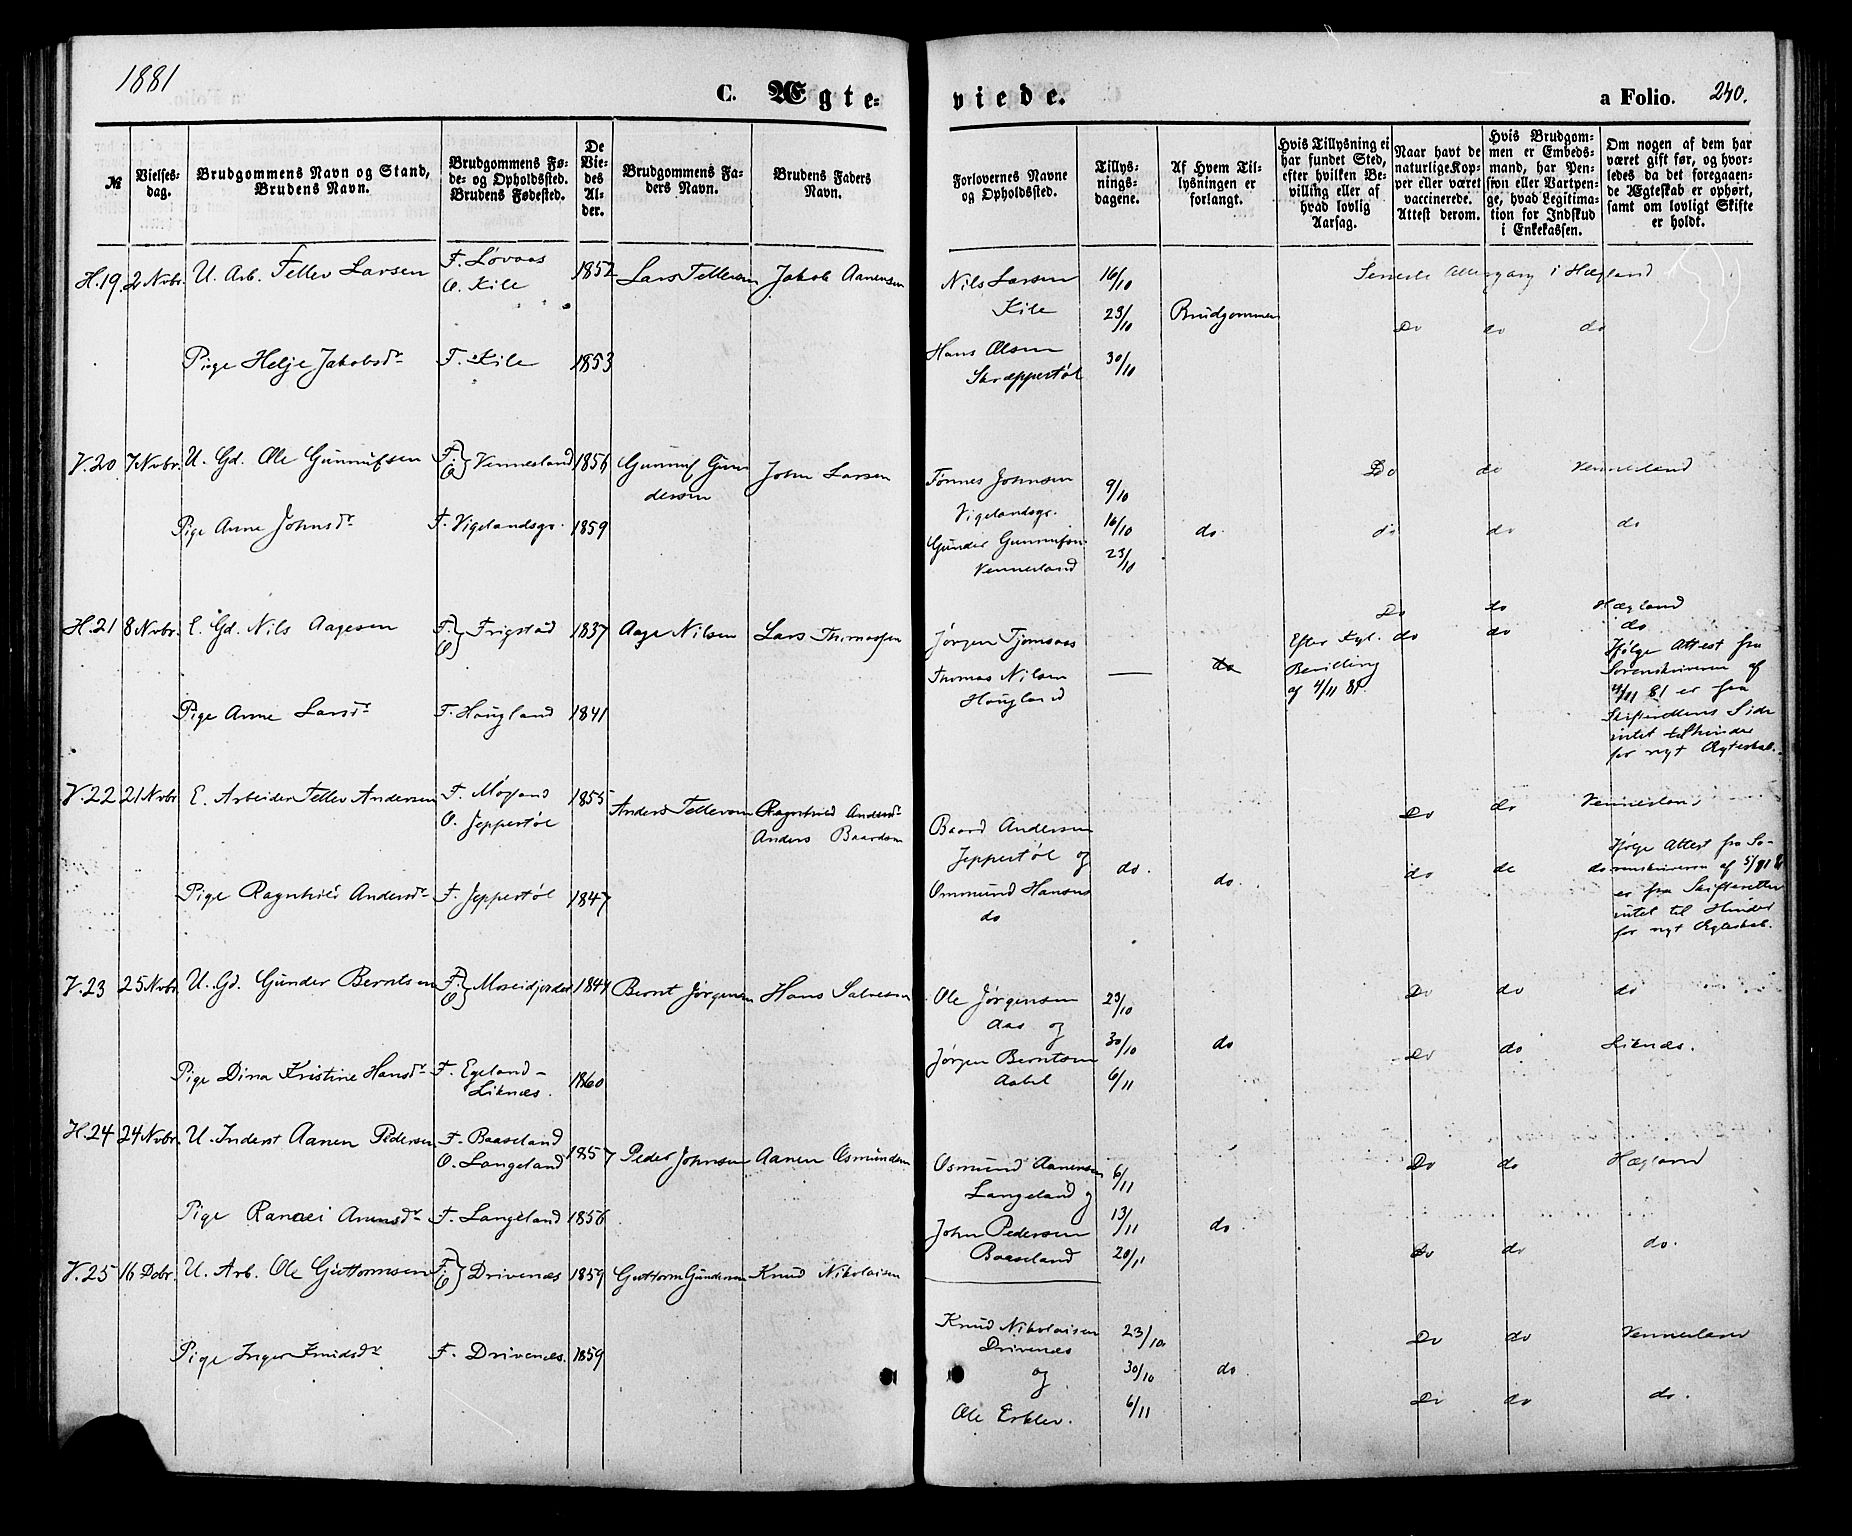 1881
C. Ægte-
viede.
a Folio. 240.
№
Vielses-
dag.
Brudgommens Navn og Stand,
Brudens Navn.
Brudgommens Fø-
de- og Opholdssted.
Brudens Fødested.
De
Vie-
des
Al-
der.
Brudgommens Fa-
ders Navn.
Brudens Faders
Navn.
Forlovernes Navne
og Opholdssted.
Tillys-
nings-
dagene.
Af Hvem Til-
lysningen er
forlangt.
Hvis Tillysning ei
har fundet Sted,
efter hvilken Be-
villing eller af
hvad lovlig
Aarsag.
Naar havt de
naturlige Kop-
per eller været
vaccinerede.
Attest derom.
Hvis Brudgom-
men er Embeds-
mand, har Pen-
sion eller Vartpen-
ge, hvad Legitima-
tion for Indskud
i Enkekassen.
Om nogen af dem har
været gift før, og hvor-
ledes da det foregaaen-
de Ægteskab er ophørt,
samt om lovligt Skifte
er holdt.
H.19. 2 Nvbr. U. Arb. Tellev Larsen
F. Løvaas
O. Kile
1852 Lars Tellevsen Jakob Aanensen
Pige Helje Jakobsdr F. Kile 1853
Nils Larsen
Kile
Hans Olsen
Skræppestøl
16/10
23/10
30/10
Brudgommen
i Hægland
Do do do
V.20 7 Nvbr. U. Gd. Ole Gunnufsen F. O. } Vennesland 1856 Gunnuf Gun
dersen
John Larsen
Pige Anne Johnsdr F. Vigelandsgr. 1859
Tønnes Johnsen
Vigelandsgr.
Gunder Gunnufsen
Vennesland
9/10
16/10
23/10
do.
Do do Vennesland
do do do
H.21 8 Nvbr. E. Gd. Nils Aagesen F. O. } Frigstad 1837 Aage Nilsen Lars Thomassen
Pige Anne Larsdr F. Hougland 1841
Jørgen Tjomsaas
Thomas Nilsen
Hougland
— do
Efter Kgl.
Bevilling
af 4/11 81.
Do do Hægland
do do do
Ifølge Attest fra
Sorenskriveren af
4/11 81 er fra
Skifterettens Side
intet til Hinder
for nyt Ægteskab.
V.22 21 Nvbr E. Arbeider Tellev Andersen
F. Møgland
O. Jeppestøl
1855 Anders Tellevsen
Ragnhild Andersdr
Anders Baardsen
Pige Ragnhild Andersdr F. Jeppestøl 1847
Baard Andersen
Jeppestøl og
Ommund Hansen
do
do. do.
Do do Vennesland
do do do
Ifølge Attest fra So-
renskriveren af
er fra Skifteretten
intet til Hinder
for nyt Ægteskab.
V.23 25 Nvbr. U. Gd. Gunder Berntsen F. O. } Moseidjordet 1844 Bernt Jørgensen Hans Salvesen
Pige Dina Kristine Hansdr F. Egeland-
Liknæs.
1860
Ole Jørgensen
Aas og
Jørgen Berntsen
23/10
30/10
6/11
do
Do do do
Do do Liknæs.
H.24 24 Nvbr. U. Inderst Aanen Pedersen
F. Baaseland
O. Langeland
1857 Peder Johnsen Aanen Osmundsen
Pige Ranaei Anensdr F. Langeland 1856
Osmund Aanensen
Langeland og
John Pedersen
Baaseland
6/11
13/11
20/11
do
Do do Hægland
Do do do.
V.25 16 Dcbr. U. Arb. Ole Guttormsen F. O. } Drivenæs 1859 Guttorm Gundersen Knud Nikolaisen
Pige Inger Knudsdr F. Drivenæs. 1859
Knud Nikolaisen
Drivenæs
og
Ole Erklev.
23/10
30/10
6/11
do.
Do do Vennesland
Do do do.